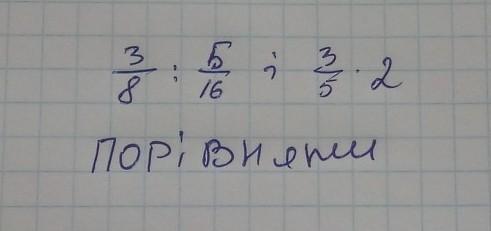 3/8 : 5/16 і 3/5 · 2
ПОРіВНЯТИ